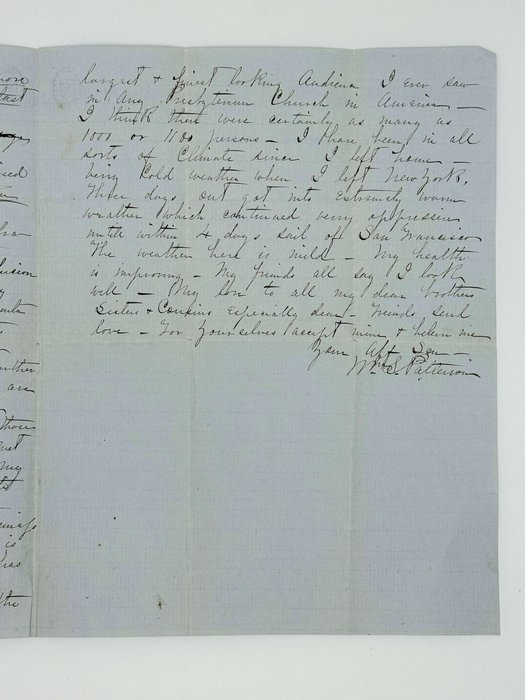 largest & finest looking Audience I ever saw
in Any Presbyterian Church in America —
I think there were certainly as many as
1000 or 1100 persons — I have been in all
sorts of Climate since I left home —
being Cold weather when I left New York.
Three days out got into Extremely warm
weather which continued very oppressive
until within 4 days sail of San Francisco
The weather here is mild — My health
is improving — My friends all say I look
well — My love to all my dear brothers
Sisters & Cousins especially dear — friends send
love — For Yourselves accept mine & believe me
Your Aff. Son —
Wm S. Patterson
more
last
are
My
is
has
the